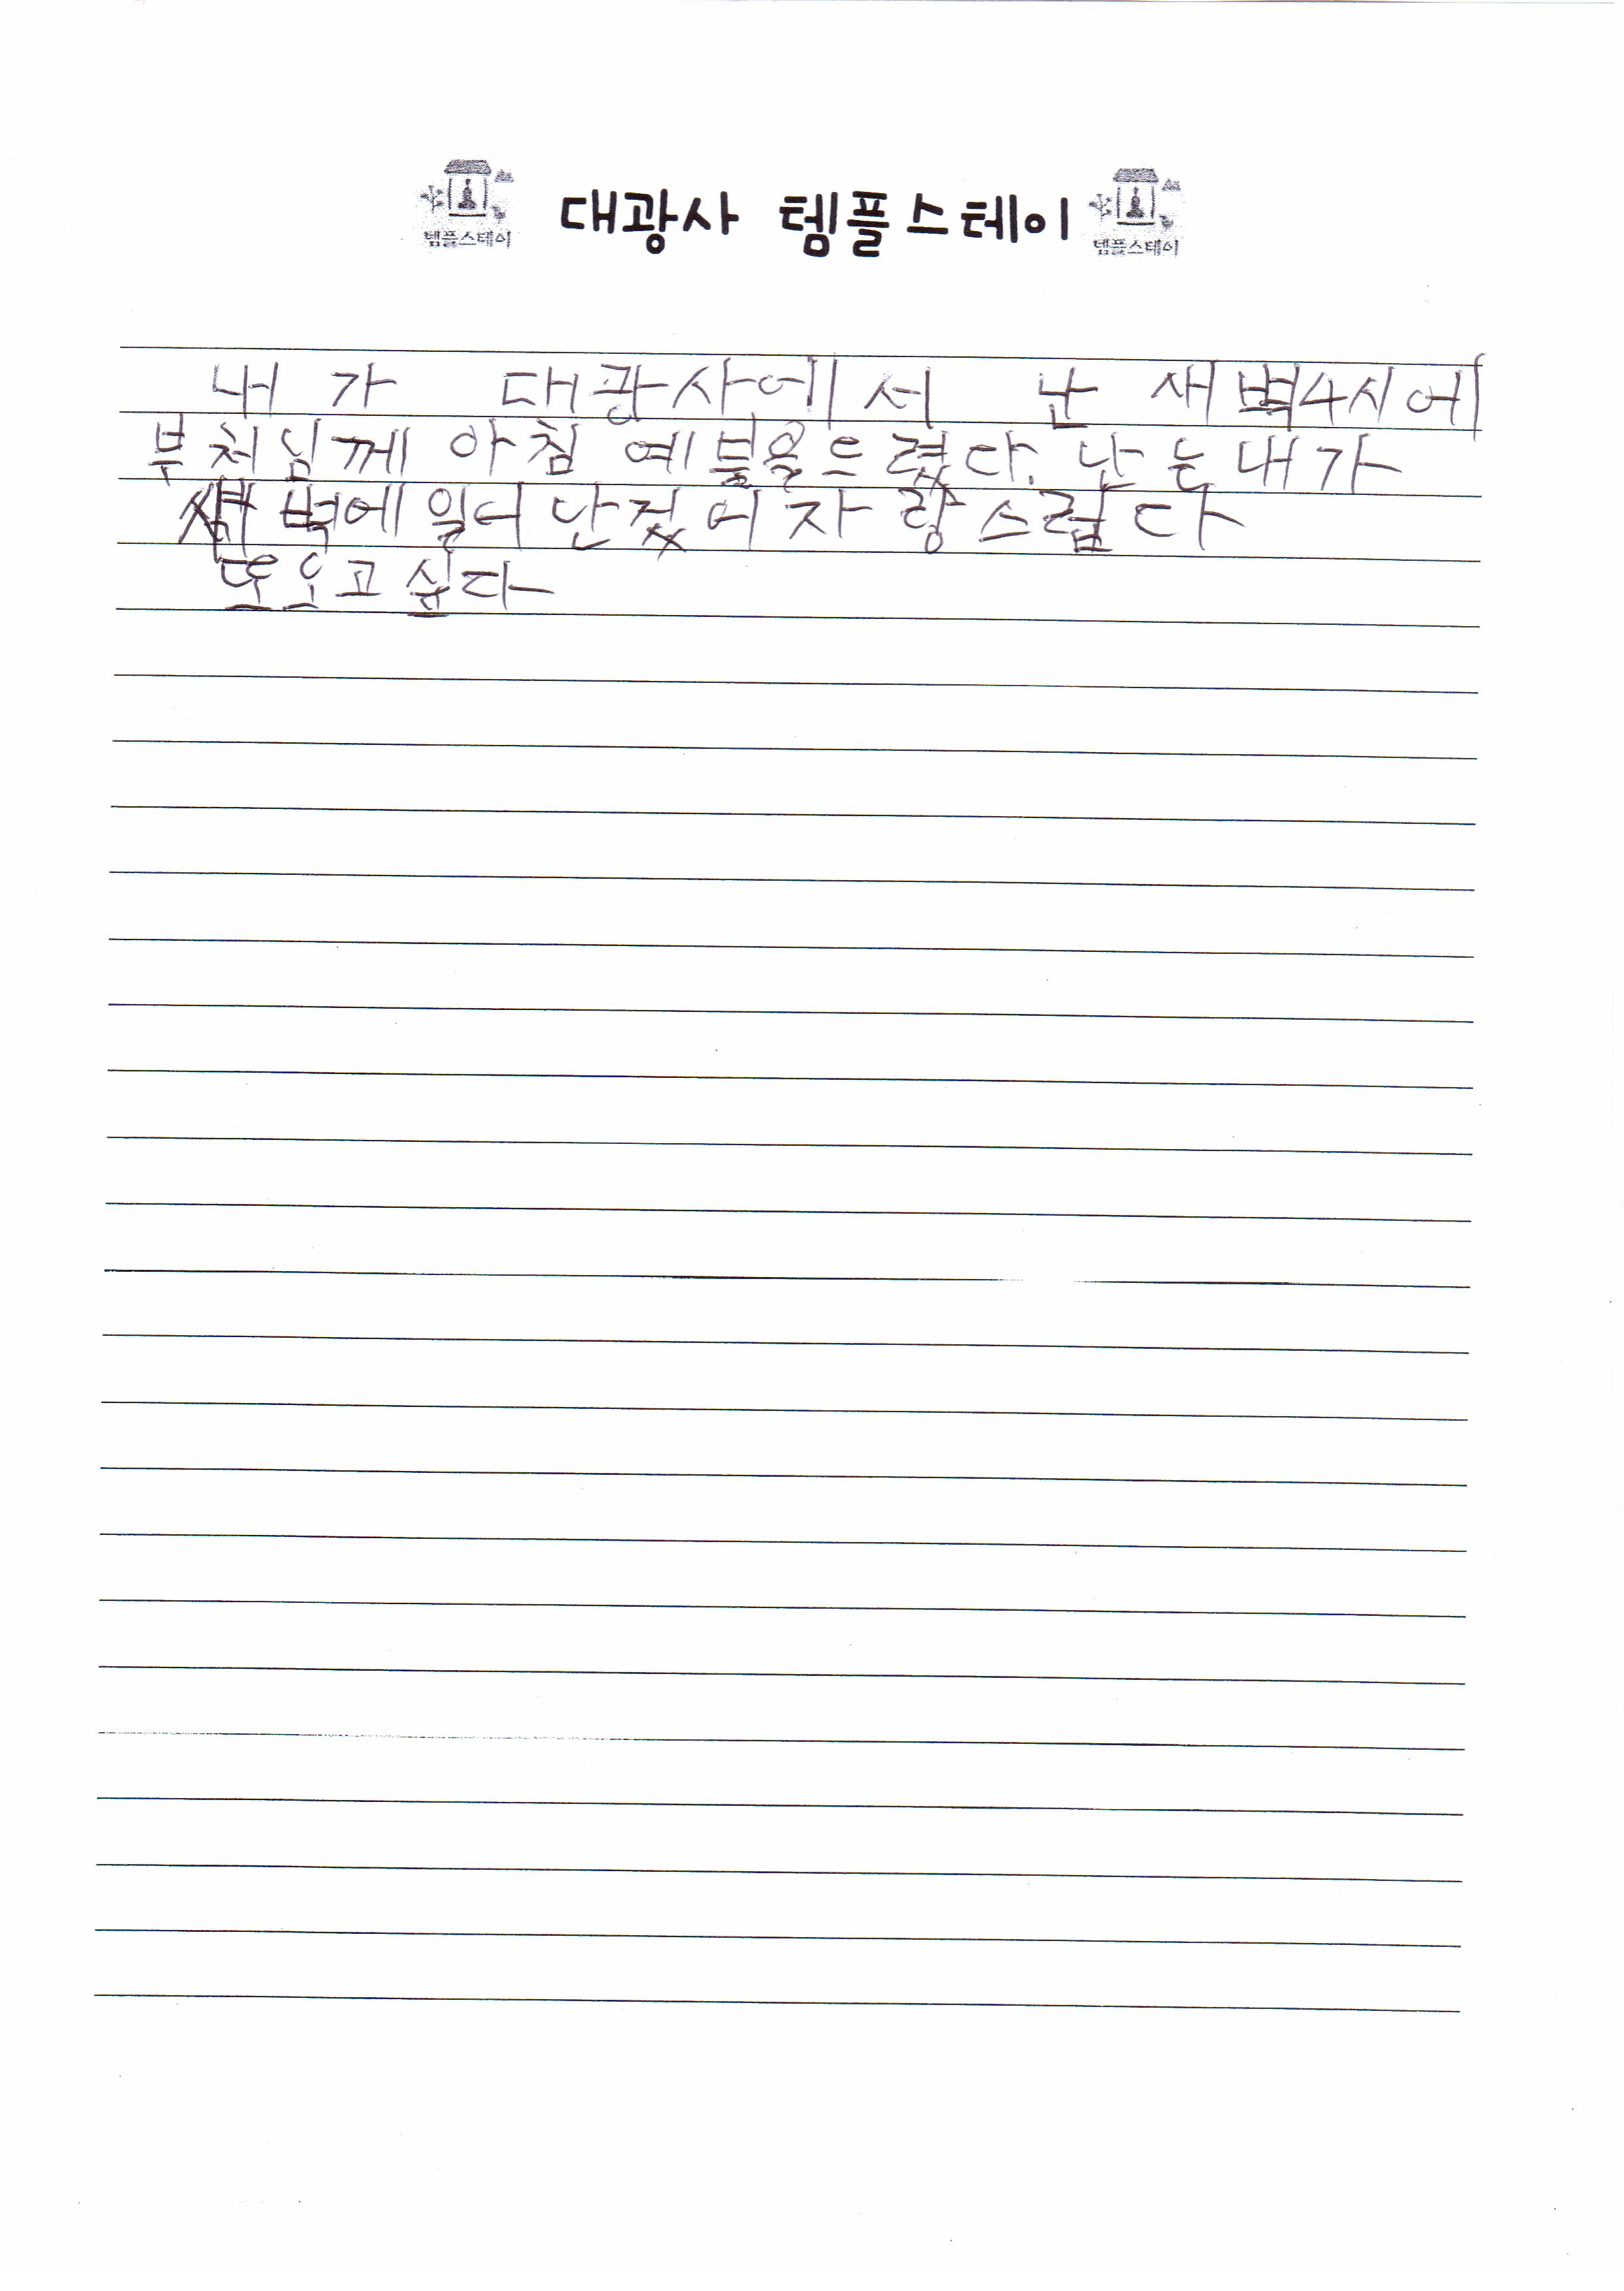 템플스테이 대광사 템플스테이 템플스테이
내가 대광사에서 난 새벽4시에
부처님께 아침 예불을드렸다. 나는내가
새벽에 일어난것이자랑스럽다
또오고싶다